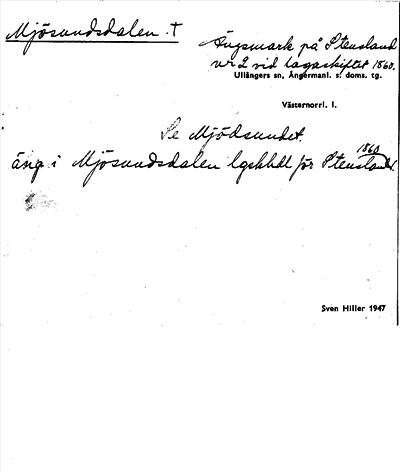 Mjösundsdalen. T
Ängsmark på Stensland
nr 2 vid lagaskiftet 1860.
Ullångers sn, Ångermanl. s. doms. tg.
Västernorrl. l.
Se Mjödsundet.
äng i Mjösundsdalen lgskhdl för Stensland 1860.
Sven Hiller 1947